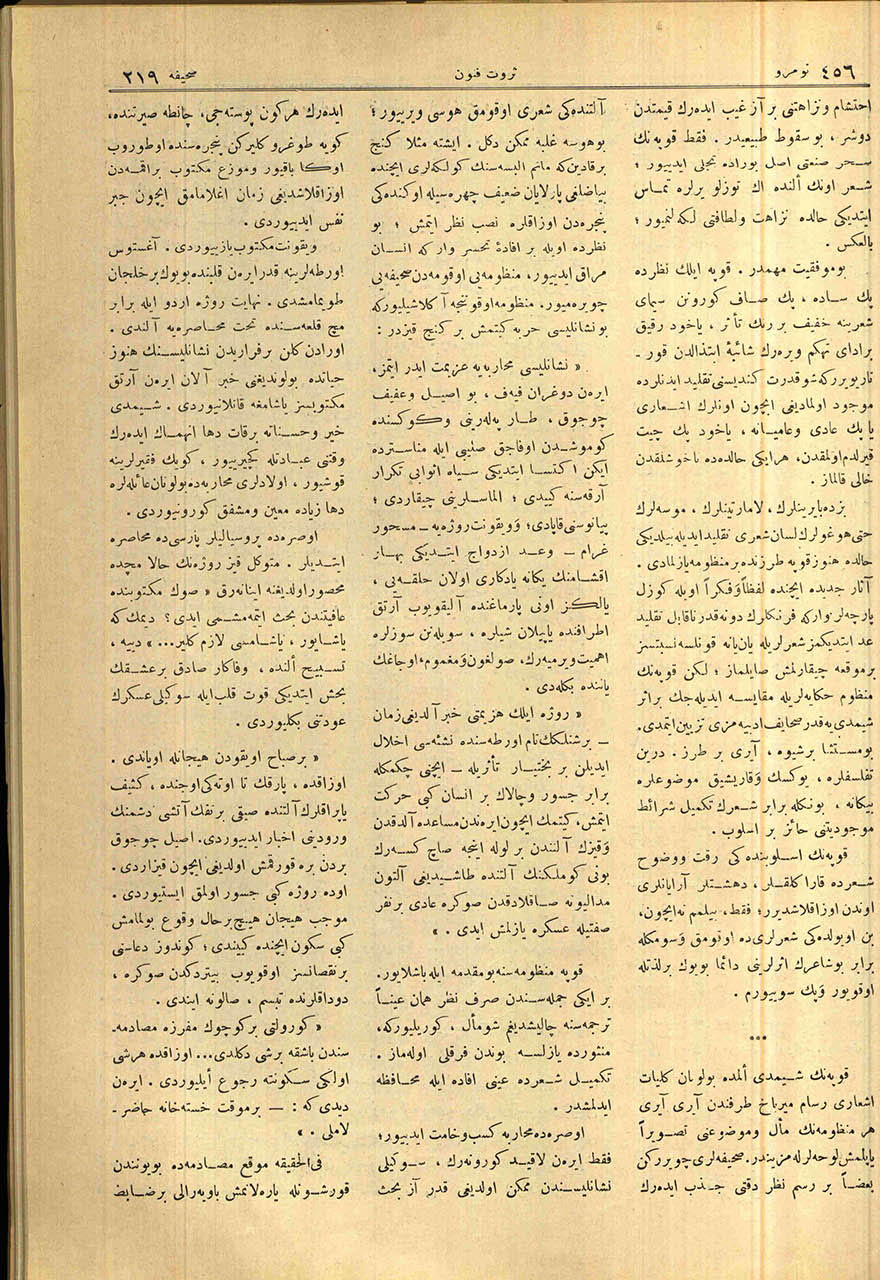 نومرو ٤٥٦
ثروت فنون
صحیفه ٢١٩
احتشام ونزاهتنی بر آز غیب ایده‌رك قیمتدن
دوشر ، بو سقوط طبیعیدر . فقط قوپه‌نك
سحر صنعتی اصل بوراده تجلی ایدییور ؛
شعر اونك ألنده اك توزلو یرلره تماس
ایتدیكی حالده نزاهت ولطافتی لكه‌لنمیور ؛
بالعكس .
بو موفقیت مهمدر . قوپه ایلك نظرده
پك ساده ، پك صاف كورونن سیمای
شعرینه خفیف بر رنك تأثر ، یاخود رقیق
بر ادای تهكم ویره‌رك شائبۀ ابتذالدن قور -
تاریویر كه شو قدرت كندیسنی تقلید ایدنلرده
موجود اولمادیغی ایچون اونلرك اشعاری
یا پك عادی وعامیانه ، یاخود پك چیت
قیرلدم اولمقدن، هر ایكی حالده‌ده ناخوشلقدن
خالی قالماز .
بزده بایرینلرك، لامارتینلرك ، موسه‌لرك
حتی هوغولرك لسان شعری تقلید ایدیله بیلدیكی
حالده هنوز قوپه طرزنده بر منظومه یازلمادی .
آثار جدیده ایچنده لفظاً وفكراً اویله كوزل
پارچه‌لر وار كه فرنكلرك دونه قدر ناقابل تقلید
عد ایتدیكمز شعرلریله یان یانه قونلسه نسبتسز
بر موقعه چیقارلمش صایلماز ؛ لكن قوپه‌نك
منظوم حكایه‌لریله مقایسه ایدیله‌جك بر اثر
شیمدی‌یه قدر صحایف ادبیه‌مزی تزیین ایتمدی.
بو مستثنا بر شیوه ، آیری بر طرز . درین
تفلسفلره ، یوكسك وقاریشیق موضوعلره
بیكانه ، بونكله برابر شعرك تكمیل شرائط
موجودیتنی حائز بر اسلوب .
قوپه‌نك اسلوبنده كی رقت ووضوح
شعرده قارا كلقلر، دهشتلر آرایانلری
اوندن اوزاقلاشدیرر ؛ فقط، بیلمم نه‌ایچون،
بن او یولده‌كی شعرلری‌ده اوقومق وسومكله
برابر بو شاعرك اثرلرینی دائما بویوك بر لذتله
اوقویور وپك سوییورم .
٭٭٭
قوپه‌نك شیمدی ألمده بولونان كلیات
اشعاری رسام میرباخ طرفندن آیری آیری
هر منظومه‌نك مأل وموضوعنی تصویراً
یاپیلمش لوحه‌لرله مزیندر. صحیفه‌لری چویرركن
بعضاً بر رسم نظر دقتی جذب ایده‌رك
آلتنده‌كی شعری اوقومق هوسی ویرییور ؛
بو هوسه غلبه ممكن دكل . ایشته مثلا كنج
بر قادین كه ماتم البسه‌سنك كولكه‌لری ایچنده
بیاضلغی پارلایان ضعیف چهره‌سیله اوكنده‌كی
پنجره‌دن اوزاقلره نصب نظر ایتمش ؛ بو
نظرده اویله بر افادۀ تحسر وار كه انسان
مراق ایدییور، منظومه‌یی اوقومه‌دن صحیفه‌یی
چویره‌میور. منظومه اوقوننجه آكلاشیلیور كه
بو نشانلیسی حربه كیتمش بر كنج قیزدر :
« نشانلیسی محاربه‌یه عزیمت ایدر ایتمز،
ایره‌ن دوغران فیه‌ف ، بو اصیل وعفیف
چوجوق ، طار په‌له‌رینی وكوكسنده
كوموشدن اوفاجق صلیبی ایله مناستردە
ایكن اكتسا ایتدیكی سیاه اثوابی تكرار
آرقه‌سنه كییدی ؛ الماسلرینی چیقاردی ؛
پیانوسنی قاپادی؛ وویقونت روژه‌یه - مسحور
غرام - وعد ازدواج ایتدیكی بهار
اقشامنك یكانه یادكاری اولان حلقه‌یی ،
یالكز اونی پارماغنده آلیقویوب آرتق
اطرافنده یاپیلان شیلره ، سویله‌نن سوزلره
اهمیت ویرمیه‌رك، صولغون ومغموم، اوجاغك
یاننده بكله‌دی .
« روژه ایلك هزیمتی خبر آلدیغی زمان
- بر شنلكك تام اورطه‌سنده نشئه‌سی اخلال
ایدیلن بر بختیار تأثریله - ایچنی چكمكله
برابر جسور وچالاك بر انسان كبی حركت
ایتمش، كیتمك ایچون ایره‌ندن مساعده آلدقدن
وقیزك آلنندن بر لوله اینجه صاچ كسه‌رك
بونی كوملكنك آلتنده طاشیدیغی آلتون
مدالیونه صاقلادقدن صوكره عادی بر نفر
صفتیله عسكره یازلمش ایدی . »
قوپه منظومه‌سنه بو مقدمه ایله باشلایور.
بر ایكی جمله‌سندن صرف نظر همان عیناً
ترجمه‌سنه چالیشدیغم شو مأل ، كوریلیور كه،
منثورده یازلسه بوندن فرقلی اوله‌ماز .
تكمیل شعرده عینی افاده ایله محافظه
ایدلمشدر .
اوصره‌ده محاربه كسب وخامت ایدییور ؛
فقط ایره‌ن لاقید كورونه‌رك ، سوكیلی
نشانلیسندن ممكن اولدیغی قدر آز بحث
ایده‌رك هر كون پوسته‌جی، چانطه صیرتنده،
كویه طوغرو كلیركن پنجره‌سنده اوطوروب
اوكا باقیور وموزع مكتوب براقمه‌دن
اوزاقلاشدیغی زمان اغلامامق ایچون جبر
نفس ایدییوردی .
ویقونت مكتوب یازییوردی . آغستوس
اورطه‌لرینه قدر ایره‌ن قلبنده بویوك بر خلجان
طویمامشدی . نهایت روژه اردو ایله برابر
مچ قلعه‌سنده تحت محاصره‌یه آلندی .
اورادن كلن بر فراریدن نشانلیسنك هنوز
حیاتده بولوندیغنی خبر آلان ایره‌ن آرتق
مكتوبسز یاشامغه قاتلانیوردی . شیمدی
خیر وحسناته بر قات دها انهماك ایده‌رك
وقتنی عبادتله كچیریور ، كویك فقیرلرینه
قوشیور ، اولادلری محاربه‌ده بولونان عائله‌لره
دها زیاده معین ومشفق كورونیوردی .
اوصره‌ده پروسیالیلر پارسی‌ده محاصره
ایتدیلر . متوكل قیز روژه‌نك حالا مچده
محصور اولدیغنه اینانه‌رق « صوك مكتوبنده
عافیتندن بحث ایتمه‌مشمی ایدی ؟ دیمك كه
یاشایور ، یاشامسی لازم كلیر... » دییه ،
تسبیح ألنده ، وفاكار صادق بر عشقك
بخش ایتدیكی قوت قلب ایله سوكیلی عسكرك
عودتنی بكلیوردی .
« بر صباح اویقودن هیجانله اویاندی .
اوزاقده ، پارقك تا اوته‌كی اوجنده ، كثیف
یاپراقلرك آلتنده صیقی بر تفك آتشی دشمنك
ورودینی اخبار ایدییوردی. اصیل چوجوق
بردن بره قورقمش اولدیغی ایچون قیزاردی .
اوده روژه كبی جسور اولمق ایستیوردی .
موجب هیجان هیچ بر حال وقوع بولمامش
كبی سكون ایچنده كییندی ؛ كوندوز دعاسنی
بر نقصانسز اوقویوب بیتردكدن صوكره ،
دوداقلرنده تبسم ، صالونه ایندی .
« كورولتی بر كوچوك مفرزه مصادمه -
سندن باشقه بر شی دكلدی... اوزاقده هر شی
اولكی سكونته رجوع أیلیوردی . ایره‌ن
دیدی كه : - بر موقت خسته‌خانه حاضر -
لاملی . »
فی‌الحقیقه موقع مصادمه‌ده بویونندن
قورشونله یاره‌لانمش باویه‌رالی بر ضابط